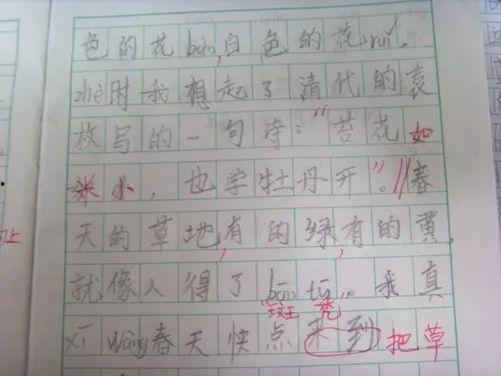 色的花bàn,白色的花ruǐ.
zhè时我想起了清代的袁
枚写的一句诗:“苔花如
米小,也学牡丹开。”//春
天的草地,有的绿,有的黄,
就像人得了bān tū。我真
斑 秃
xī wàng春天快点来到 把草